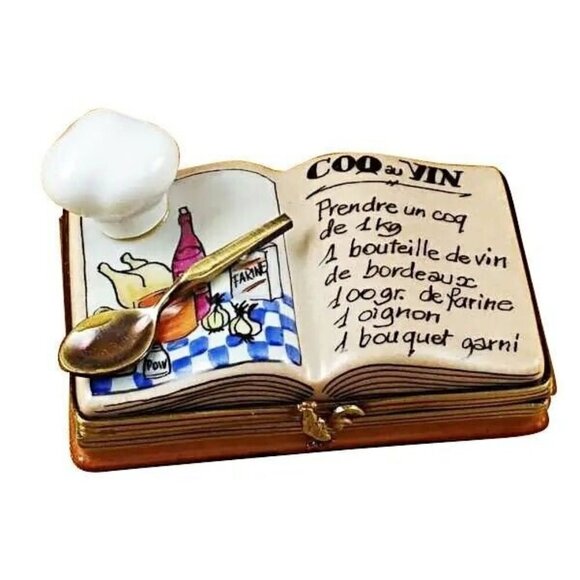 COQ au VIN
Prendre un coq
de 1 kg
1 bouteille de vin
de bordeaux
100 gr. de farine
1 oignon
1 bouquet garni
FARINE
POW